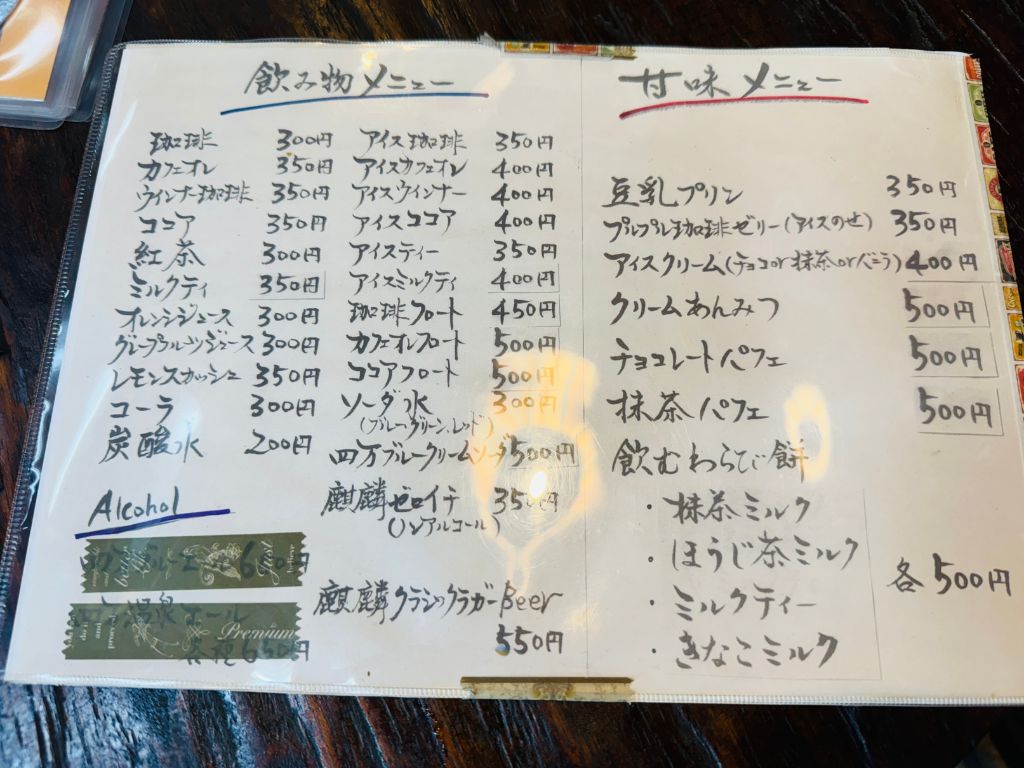 飲み物メニュー
珈琲 300円
カフェオレ 350円
ウィンナー珈琲 350円
ココア 350円
紅茶 300円
ミルクティ 350円
オレンジジュース 300円
グレープフルーツジュース 300円
レモンスカッシュ 350円
コーラ 300円
炭酸水 200円
アイス珈琲 350円
アイスカフェオレ 400円
アイスウィンナー 400円
アイスココア 400円
アイスティー 350円
アイスミルクティ 400円
珈琲フロート 450円
カフェオレフロート 500円
ココアフロート 500円
ソーダ水 300円
(ブルー.グリーン.レッド)
四万ブルークリームソーダ 500円
麒麟ゼロイチ 350円
(ノンアルコール)
Alcohol
四万ブルーエール 650円
四万温泉エール
各種 650円
Premium
麒麟クラシックラガーBeer
550円
甘味メニュー
豆乳プリン 350円
プルプル珈琲ゼリー(アイスのせ) 350円
アイスクリーム(チョコor抹茶orバニラ) 400円
クリームあんみつ 500円
チョコレートパフェ 500円
抹茶パフェ 500円
飲むわらび餅
・抹茶ミルク
・ほうじ茶ミルク
・ミルクティー
・きなこミルク
各500円